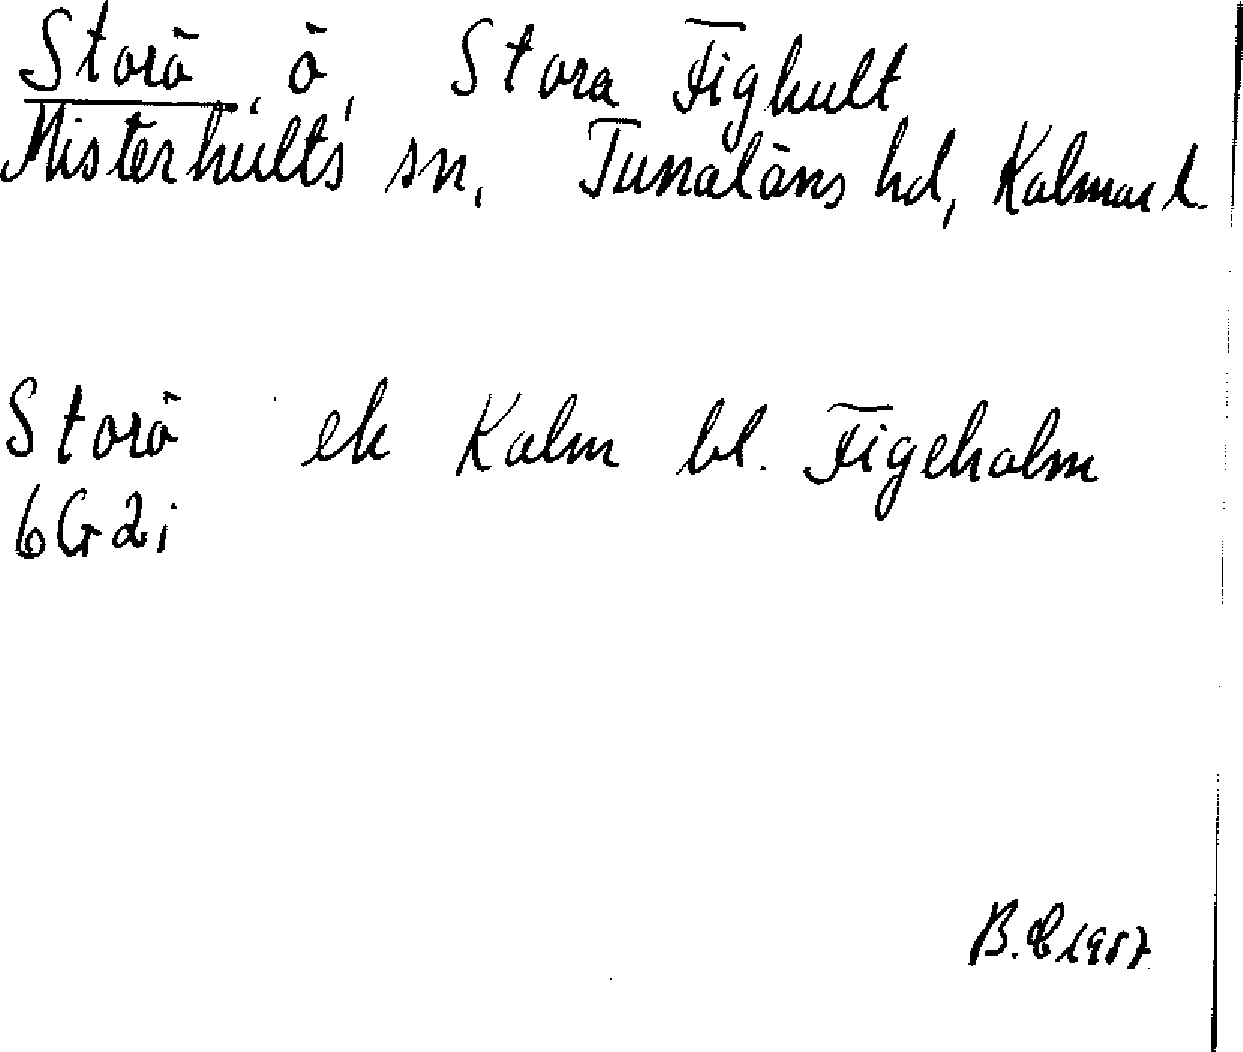 Storö, ö, Stora Fighult
Misterhults sn, Tunaläns hd, Kalmar l.
Storö ek Kalm bl. Figeholm
6G2i
B.E 1987